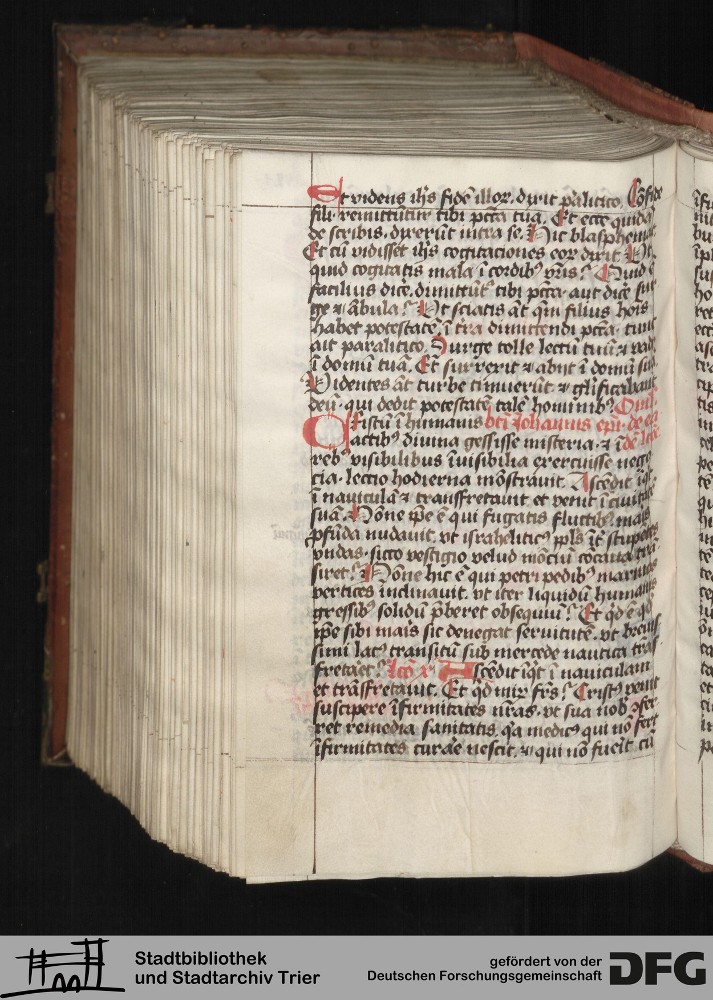 Et videns ih̄s fidē illoꝝ. dixit p̄alitico. Cōfide
fili remittūtur tibi pcc̄a tua. Et ecce quidā
de scribis. dixerūt intra se. Hic blasphemat
Et cū vidisset ih̄s cogitaciones eoꝝ dixit Ut
quid cogitatis mala ī cordibꝰ vr̄is? Quid ē
facilius dice. dimittūt᷑ tibi pcc̄a. aut dice sur
ge ⁊ ābula? Ut sciatis āt qm̄ filius hoīs
habet potestatē ī tr̄a dimittendi pcc̄a. tunc
ait paralitico. Surge tolle lectū tuū ⁊ vade
ī domū tuā. Et surrexit ⁊ abijt ī domū suā
Videntes āt turbe timuerūt ⁊ gl̄ificabant
deū. qui dedit potestatē talē hominibꝰ.
Cristū ī humanis btī Johannis ep̄i. de eadē lc̄oe
actibꝰ divina gessisse misteria. ⁊ ī
rebꝰ visibilibus īvisibilia exercuisse nego
cia. lectio hodierna mōstravit. Ascēdit īq̇t
ī naviculā ⁊ transfretavit et venit ī civitatē
suā. Nōne ip̄e ē qui fugatis fluctibꝰ maris
ꝓfūda nudavit. vt israheliticꝰ ppl̄s īt᷑ stupētes
vndas. sicco vestigio velud mōciū cōcava trā
siret? Nōne hic ē qui petri pedibꝰ marinos
vertices inclinavit. vt iter liquidū humanis
gressibꝰ solidū p̄beret obsequiū? Et qd̄ ē qd̄
ip̄e sibi maris sic denegat servitutē. vt brevis
simi lacꝰ transitū sub mercede nautica trās
fretaret? Ascēdit īq̇t ī naviculam
et trāsfretavit. Et qd̄ miꝝ frs̄? Cristꝰ venit
suscipere īfirmitates nr̄as. vt sua nob̄ ꝯfer
ret remedia sanitatis. q̇a medicꝰ qui nō fert
īfirmitates curare nescit. ⁊ qui nō fuerit cū
Stadtbibliothek
und Stadtarchiv Trier
gefördert von der
Deutschen Forschungsgemeinschaft
DFG